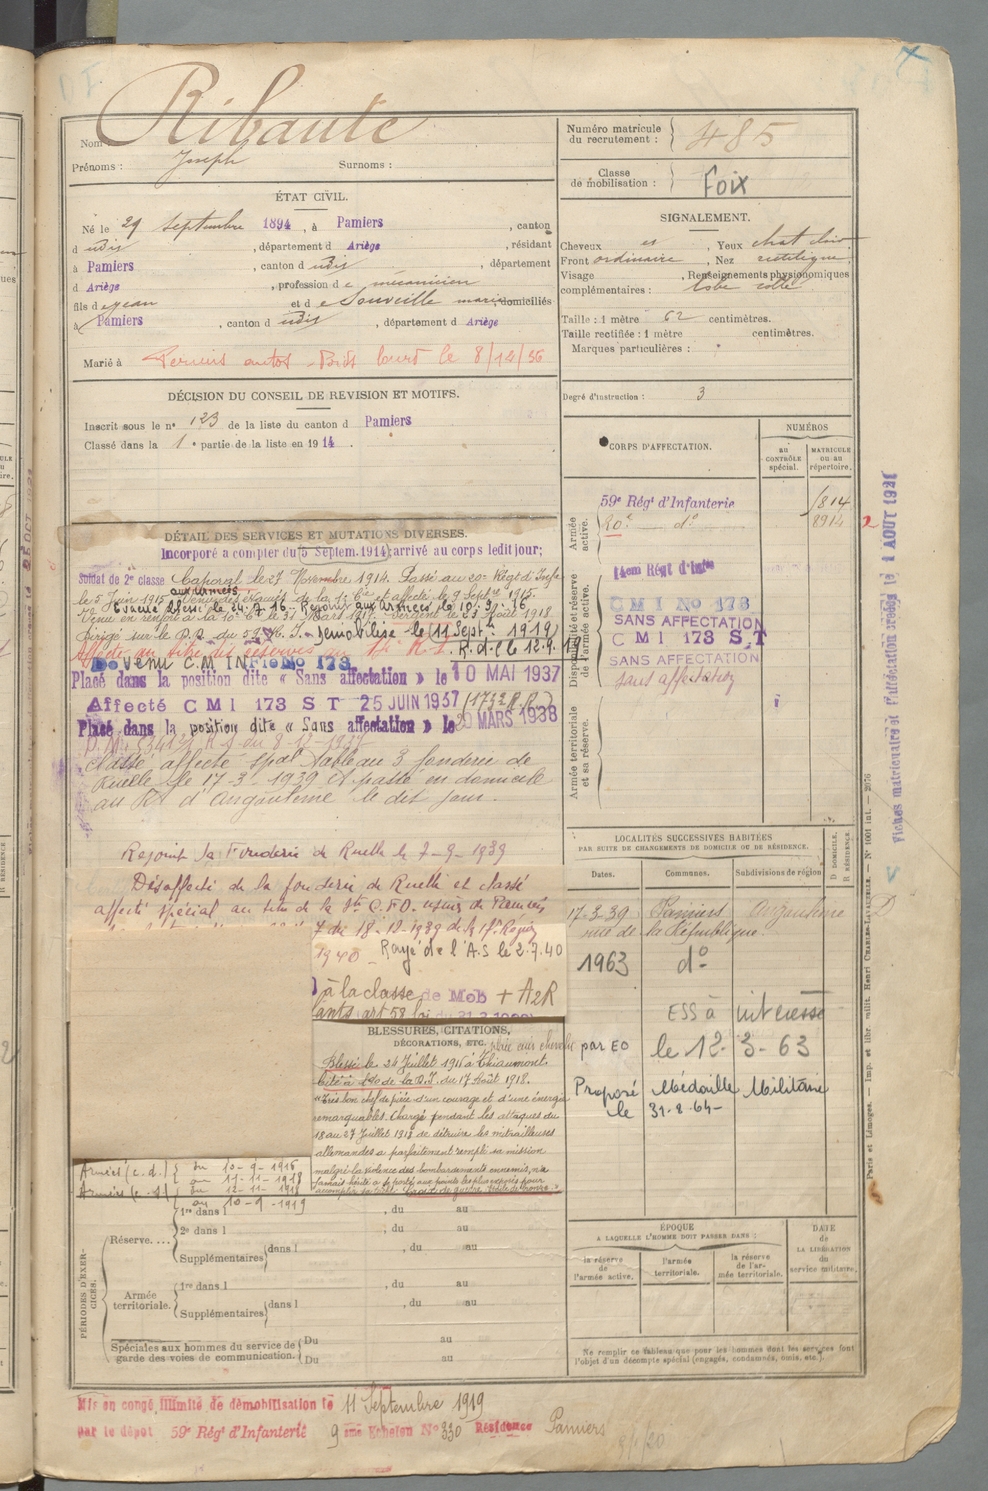 Ribaute
Nom :
Prénoms : Joseph Surnoms :
Numéro matricule du recrutement : 485
Classe de mobilisation : Foix
ÉTAT CIVIL.
Né le 29 Septembre 1894, à Pamiers, canton
d udis, département d Ariège, résidant
à Pamiers, canton d udis, département
d Ariège, profession de mécanicien
fils de Jean et de Souveille Marie domiciliés
à Pamiers, canton d udis, département d Ariège
Marié à le 8/12/56
SIGNALEMENT.
Cheveux, Yeux chat clair
Front ordinaire, Nez rectiligne
Visage, Renseignements physionomiques
complémentaires : lobe collé
Taille : 1 mètre 62 centimètres.
Taille rectifiée : 1 mètre centimètres.
Marques particulières :
Degré d'instruction : 3
DÉCISION DU CONSEIL DE REVISION ET MOTIFS.
Inscrit sous le n° 123 de la liste du canton d Pamiers
Classé dans la 1e partie de la liste en 1914.
CORPS D'AFFECTATION.
NUMÉROS
AU CONTRÔLE spécial.
MATRICULE ou au répertoire.
Armée active.
59e Régt d'Infanterie
20e d°
8914
Disponibilité et réserve de l'armée active.
14em Régt d'Infie
C M I No 173
SANS AFFECTATION
C M I 173 S.T
SANS AFFECTATION
Sans affectation
Armée territoriale et sa réserve.
DÉTAIL DES SERVICES ET MUTATIONS DIVERSES.
Incorporé à compter du 5 Septem. 1914, arrivé au corps ledit jour;
Soldat de 2e classe Caporal le 27 Novembre 1914. Passé au 20e Régt d'Infie
le 5 Juin 1915 aux armées et affecté le 9 Septre 1915.
Evacué blessé le 24.7.16. Rejoint aux armées le 10.9.16
Venu en renfort à la 10e Cie le 31 Mars 1917. Sergent le 23 Août 1918
Dirigé sur le D.D. du 59e R.I. Démobilisé le (11 Sept. 1919)
R.d.C le 12.9.19
Devenu C.M INFie No 173
Placé dans la position dite « Sans affectation » le 10 MAI 1937
Affecté C M I 173 S T 25 JUIN 1937
Placé dans la position dite « Sans affectation » le 20 MARS 1938
Classé affecté spal tableau 3 fonderie de
Ruelle le 17-3-1939 et passé en domicile
au Rt d'Angoulême le dit jour.
Rejoint la Fonderie de Ruelle le 7-9-1939
Désaffecté de la fonderie de Ruelle et classé
affecté spécial au titre de la usine de Pamiers
du 18-12-1939 de la 17e Région
1940 - Rayé de l'A.S le 2.7.40
à la classe de Mob + A2R
LOCALITÉS SUCCESSIVES HABITÉES
PAR SUITE DE CHANGEMENTS DE DOMICILE OU DE RÉSIDENCE.
Dates. Communes. Subdivisions de région
D DOMICILE. R RÉSIDENCE.
17-3-39 Pamiers Angoulême D
rue de la République.
1963 d°
ESS à intéressé
par EO le 12-3-63
Proposé Médaille Militaire
le 31-8-64-
BLESSURES, CITATIONS,
DÉCORATIONS, ETC.
Blessé le 24 Juillet 1916 à Thiaumont
Cité à l'O de la D.I. du 17 Août 1918.
"Très bon chef de pièce d'un courage et d'une énergie
remarquables. Chargé pendant les attaques du
18 au 27 Juillet 1918 de détruire les mitrailleuses
allemandes a parfaitement rempli sa mission
malgré la violence des bombardements ennemis, n'a
jamais hésité à se porter aux points les plus exposés pour
accomplir sa tâche. Croix de guerre étoile de bronze.
Armées (c.d.) du 10-9-1916
au 11-11-1918
Armées du 12-11-1918
au 10-9-1919
PÉRIODES D'EXERCICES.
Réserve....
1re dans l , du au
2e dans l , du au
Supplémentaires dans l , du au
Armée territoriale.
1re dans l , du au
Supplémentaires dans l , du au
Spéciales aux hommes du service de garde des voies de communication.
Du au
Du au
ÉPOQUE
A LAQUELLE L'HOMME DOIT PASSER DANS :
la réserve de l'armée active.
l'armée territoriale.
la réserve de l'armée territoriale.
DATE DE LA LIBÉRATION du service militaire.
Ne remplir ce tableau que pour les hommes dont les services font
l'objet d'un décompte spécial (engagés, condamnés, omis, etc.).
Mis en congé illimité de démobilisation le 11 Septembre 1919
par le dépôt 59e Régt d'Infanterie 9 ème Echelon N° 330 Résidence Pamiers
Paris et Limoges. — Imp. et libr. milit. Henri CHARLES-LAVAUZELLE. — N° 1001 int. — 2076